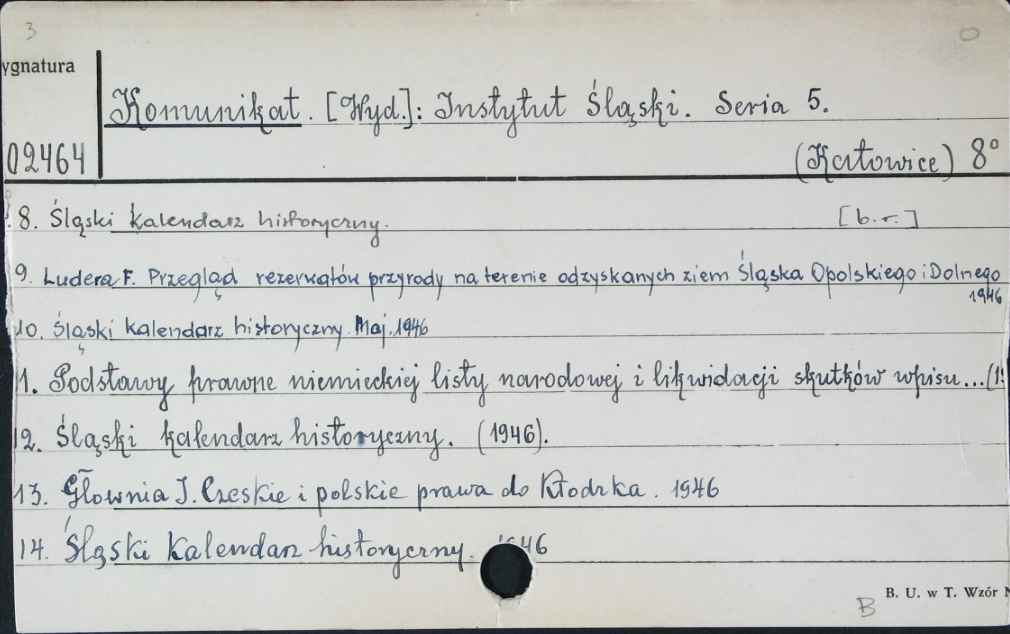 3
O
ygnatura
Komunikat. [Wyd.]: Instytut Śląski. Seria 5.
02464
(Katowice) 8°
8. Śląski kalendarz historyczny. [b.r.]
9. Ludera F. Przegląd rezerwatów przyrody na terenie odzyskanych ziem Śląska Opolskiego i Dolnego
1946
10. Śląski kalendarz historyczny. Maj. 1946
11. Podstawy prawne niemieckiej listy narodowej i likwidacji skutków wpisu...(19
12. Śląski kalendarz historyczny. (1946).
13. Głownia J. Czeskie i polskie prawa do Kłodzka. 1946
14. Śląski kalendarz historyczny. 1946
B. U. w T. Wzór N
B